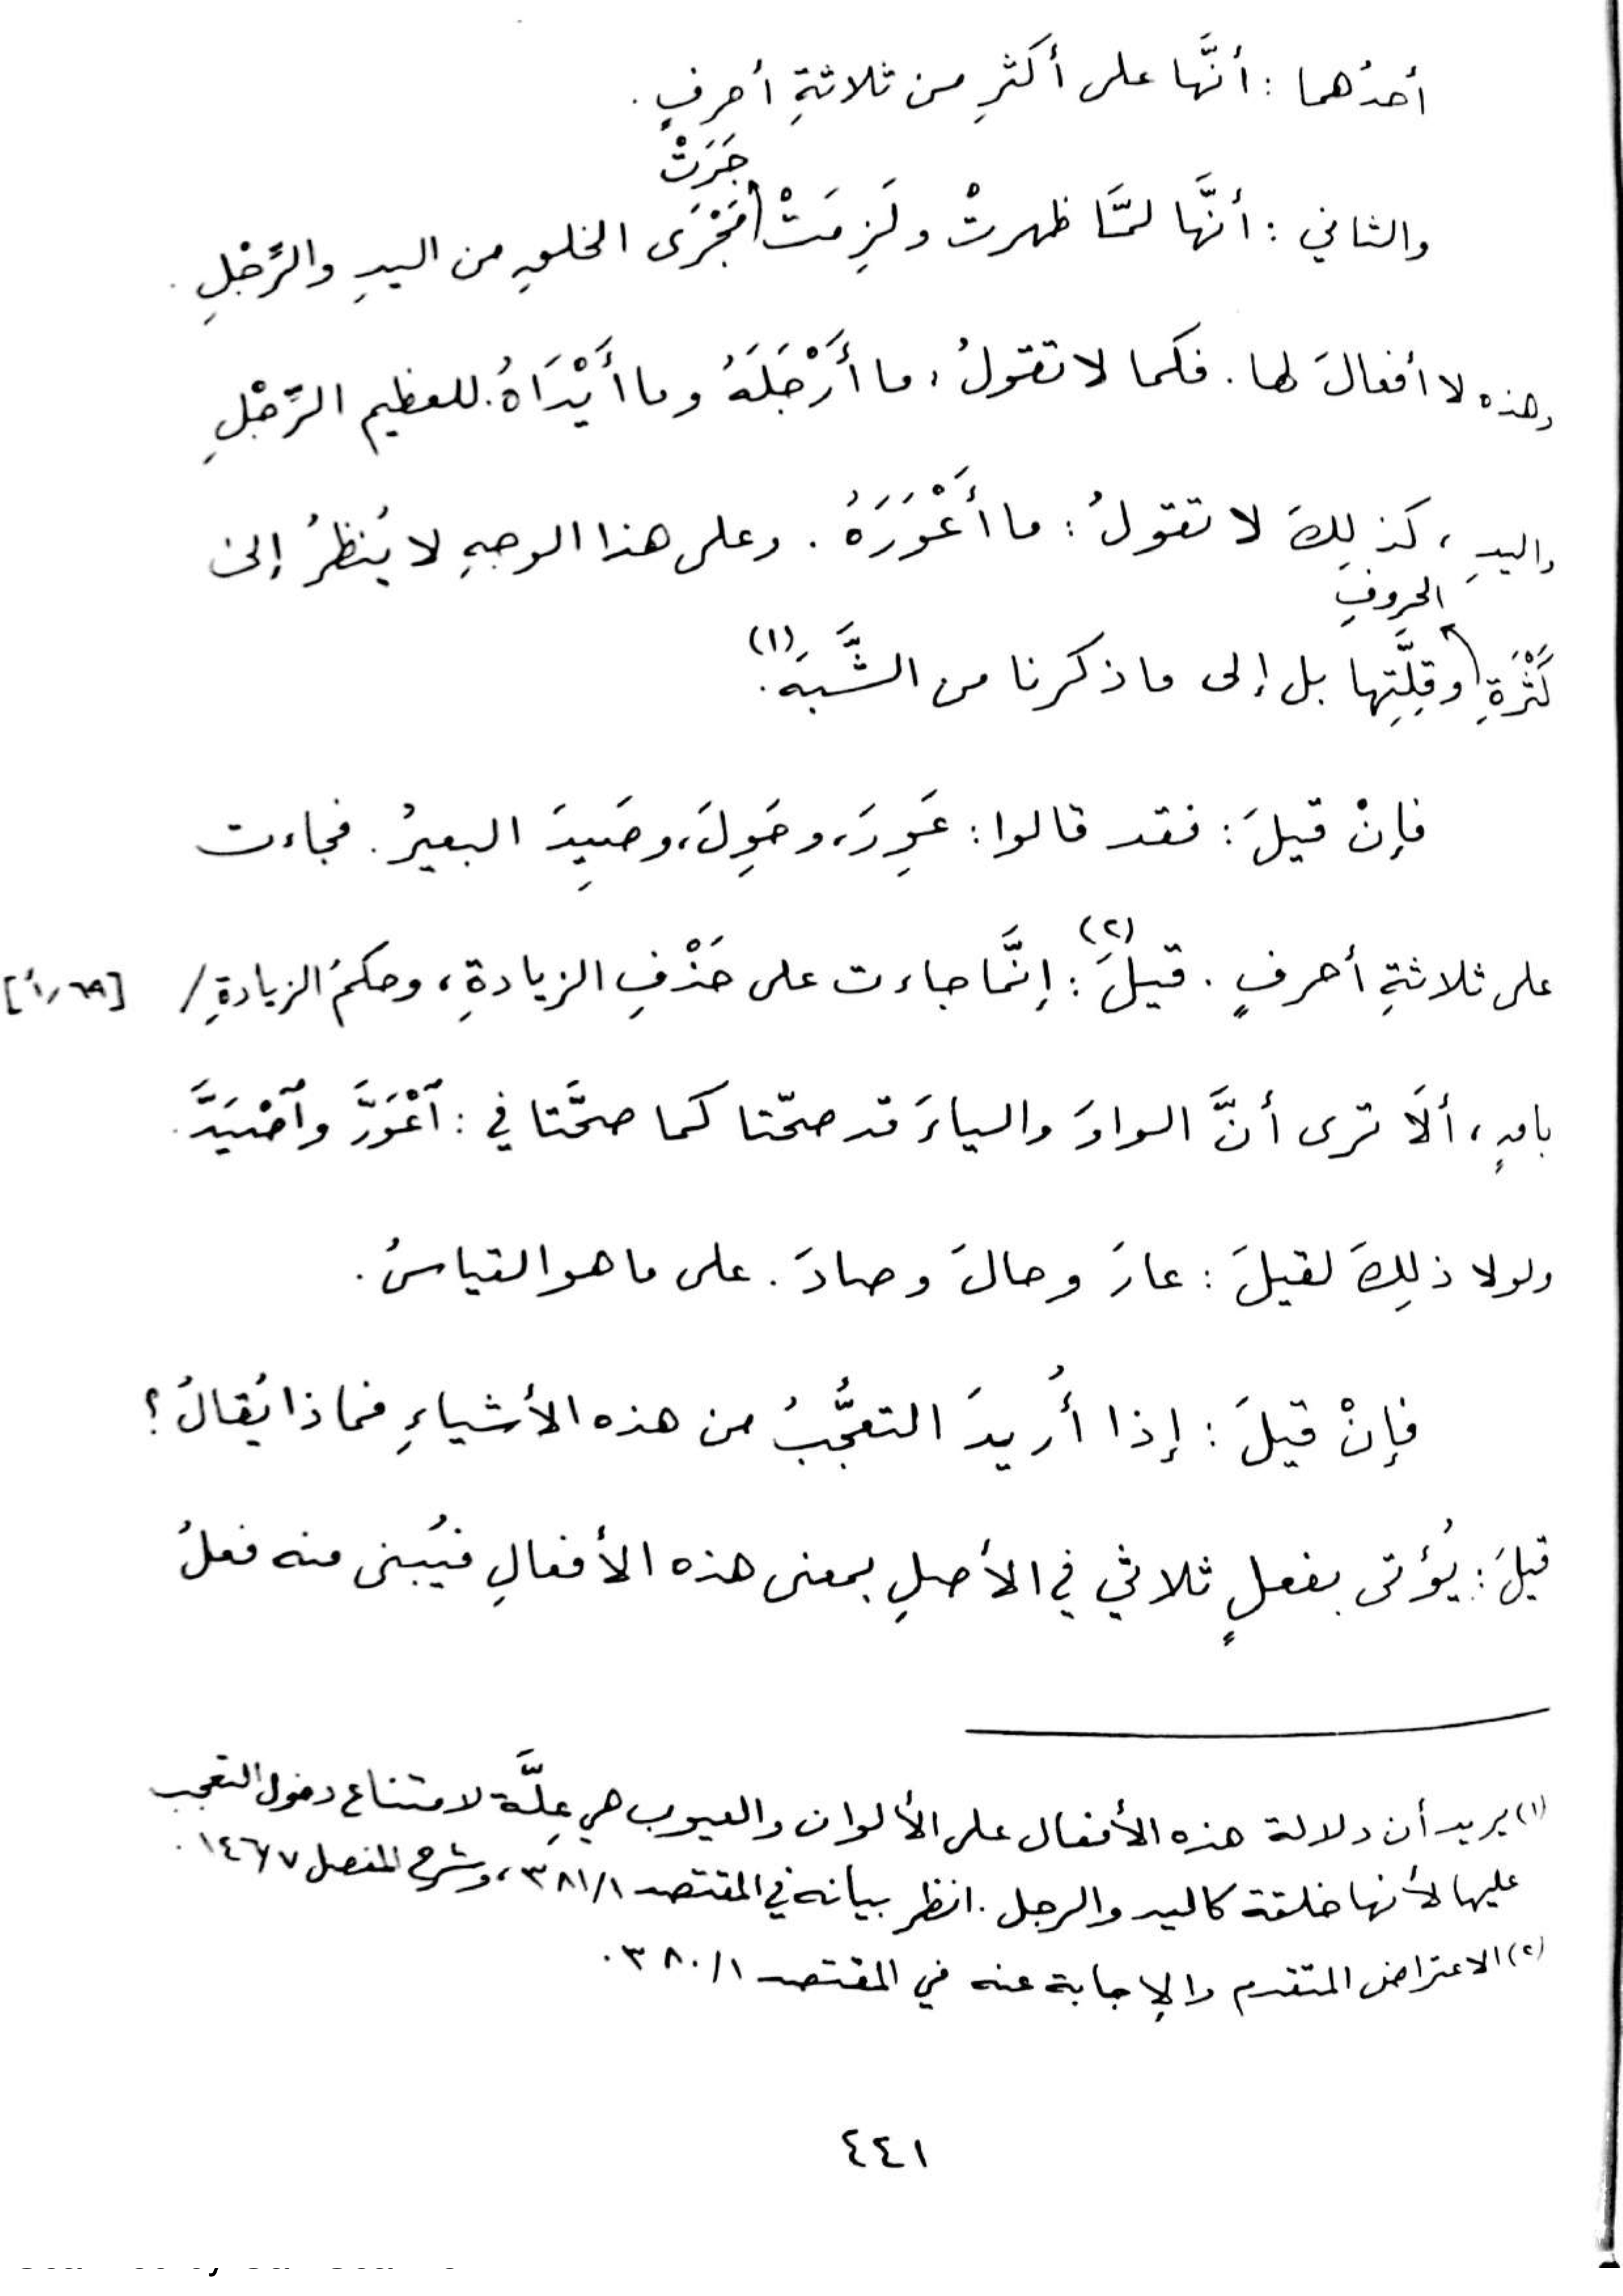 أحدُهما : أنَّها على أكثرِ من ثلاثةِ أحرفٍ .
والثاني : أنَّها لمَّا ظهرتْ ولَزِمَتْ جَرَتْ مَجْرَى الخلقِ من اليدِ والرِّجْلِ .
وهذه لا أفعالَ لها . فكما لا تقولُ : ما أَرْجَلَهُ وما أَيْدَاهُ . للعظيم الرِّجْلِ
واليدِ ، كذلِكَ لا تقولُ : ما أَعْوَرَهُ . وعلى هذا الوجهِ لا يُنظرُ إلى
كَثْرَةِ الحروفِ وقِلَّتِها بل إلى ما ذكرنا من الشَّبَهِ (١) .
فإنْ قيلَ : فقد قالوا : عَوِرَ، وحَوِلَ، وصَيِدَ البعيرُ . فجاءت
على ثلاثةِ أحرفٍ . قيلَ (٢) : إنَّما جاءت على حَذْفِ الزيادةِ ، وحكمُ الزيادةِ / [٦٩/أ]
باقٍ ، ألَا ترى أنَّ الواوَ والياءَ قد صحّتا كما صحَّتا في : اعْوَرَّ واصْيَدَّ .
ولولا ذلِكَ لقيلَ : عارَ وحالَ وصادَ . على ما هو القياسُ .
فإنْ قيلَ : إذا أُريدَ التعجُّبُ من هذه الأشياءِ فماذا يُقالُ ؟
قيلَ : يُؤتى بفعلٍ ثلاثي في الأصلِ بمعنى هذه الأفعالِ فيُبنى منه فعلُ
(١) يريد أن دلالة هذه الأفعال على الألوان والعيوب هي عِلَّة لامتناع دخول التعجب
عليها لأنها خلقة كاليد والرجل . انظر بيانه في المقتصد ٣٨١/١ ، وشرح المفصل ١٤٦/٧ .
(٢) الاعتراض المتقدم والإجابة عنه في المقتصد ٣٨٠/١ .
٤٤١